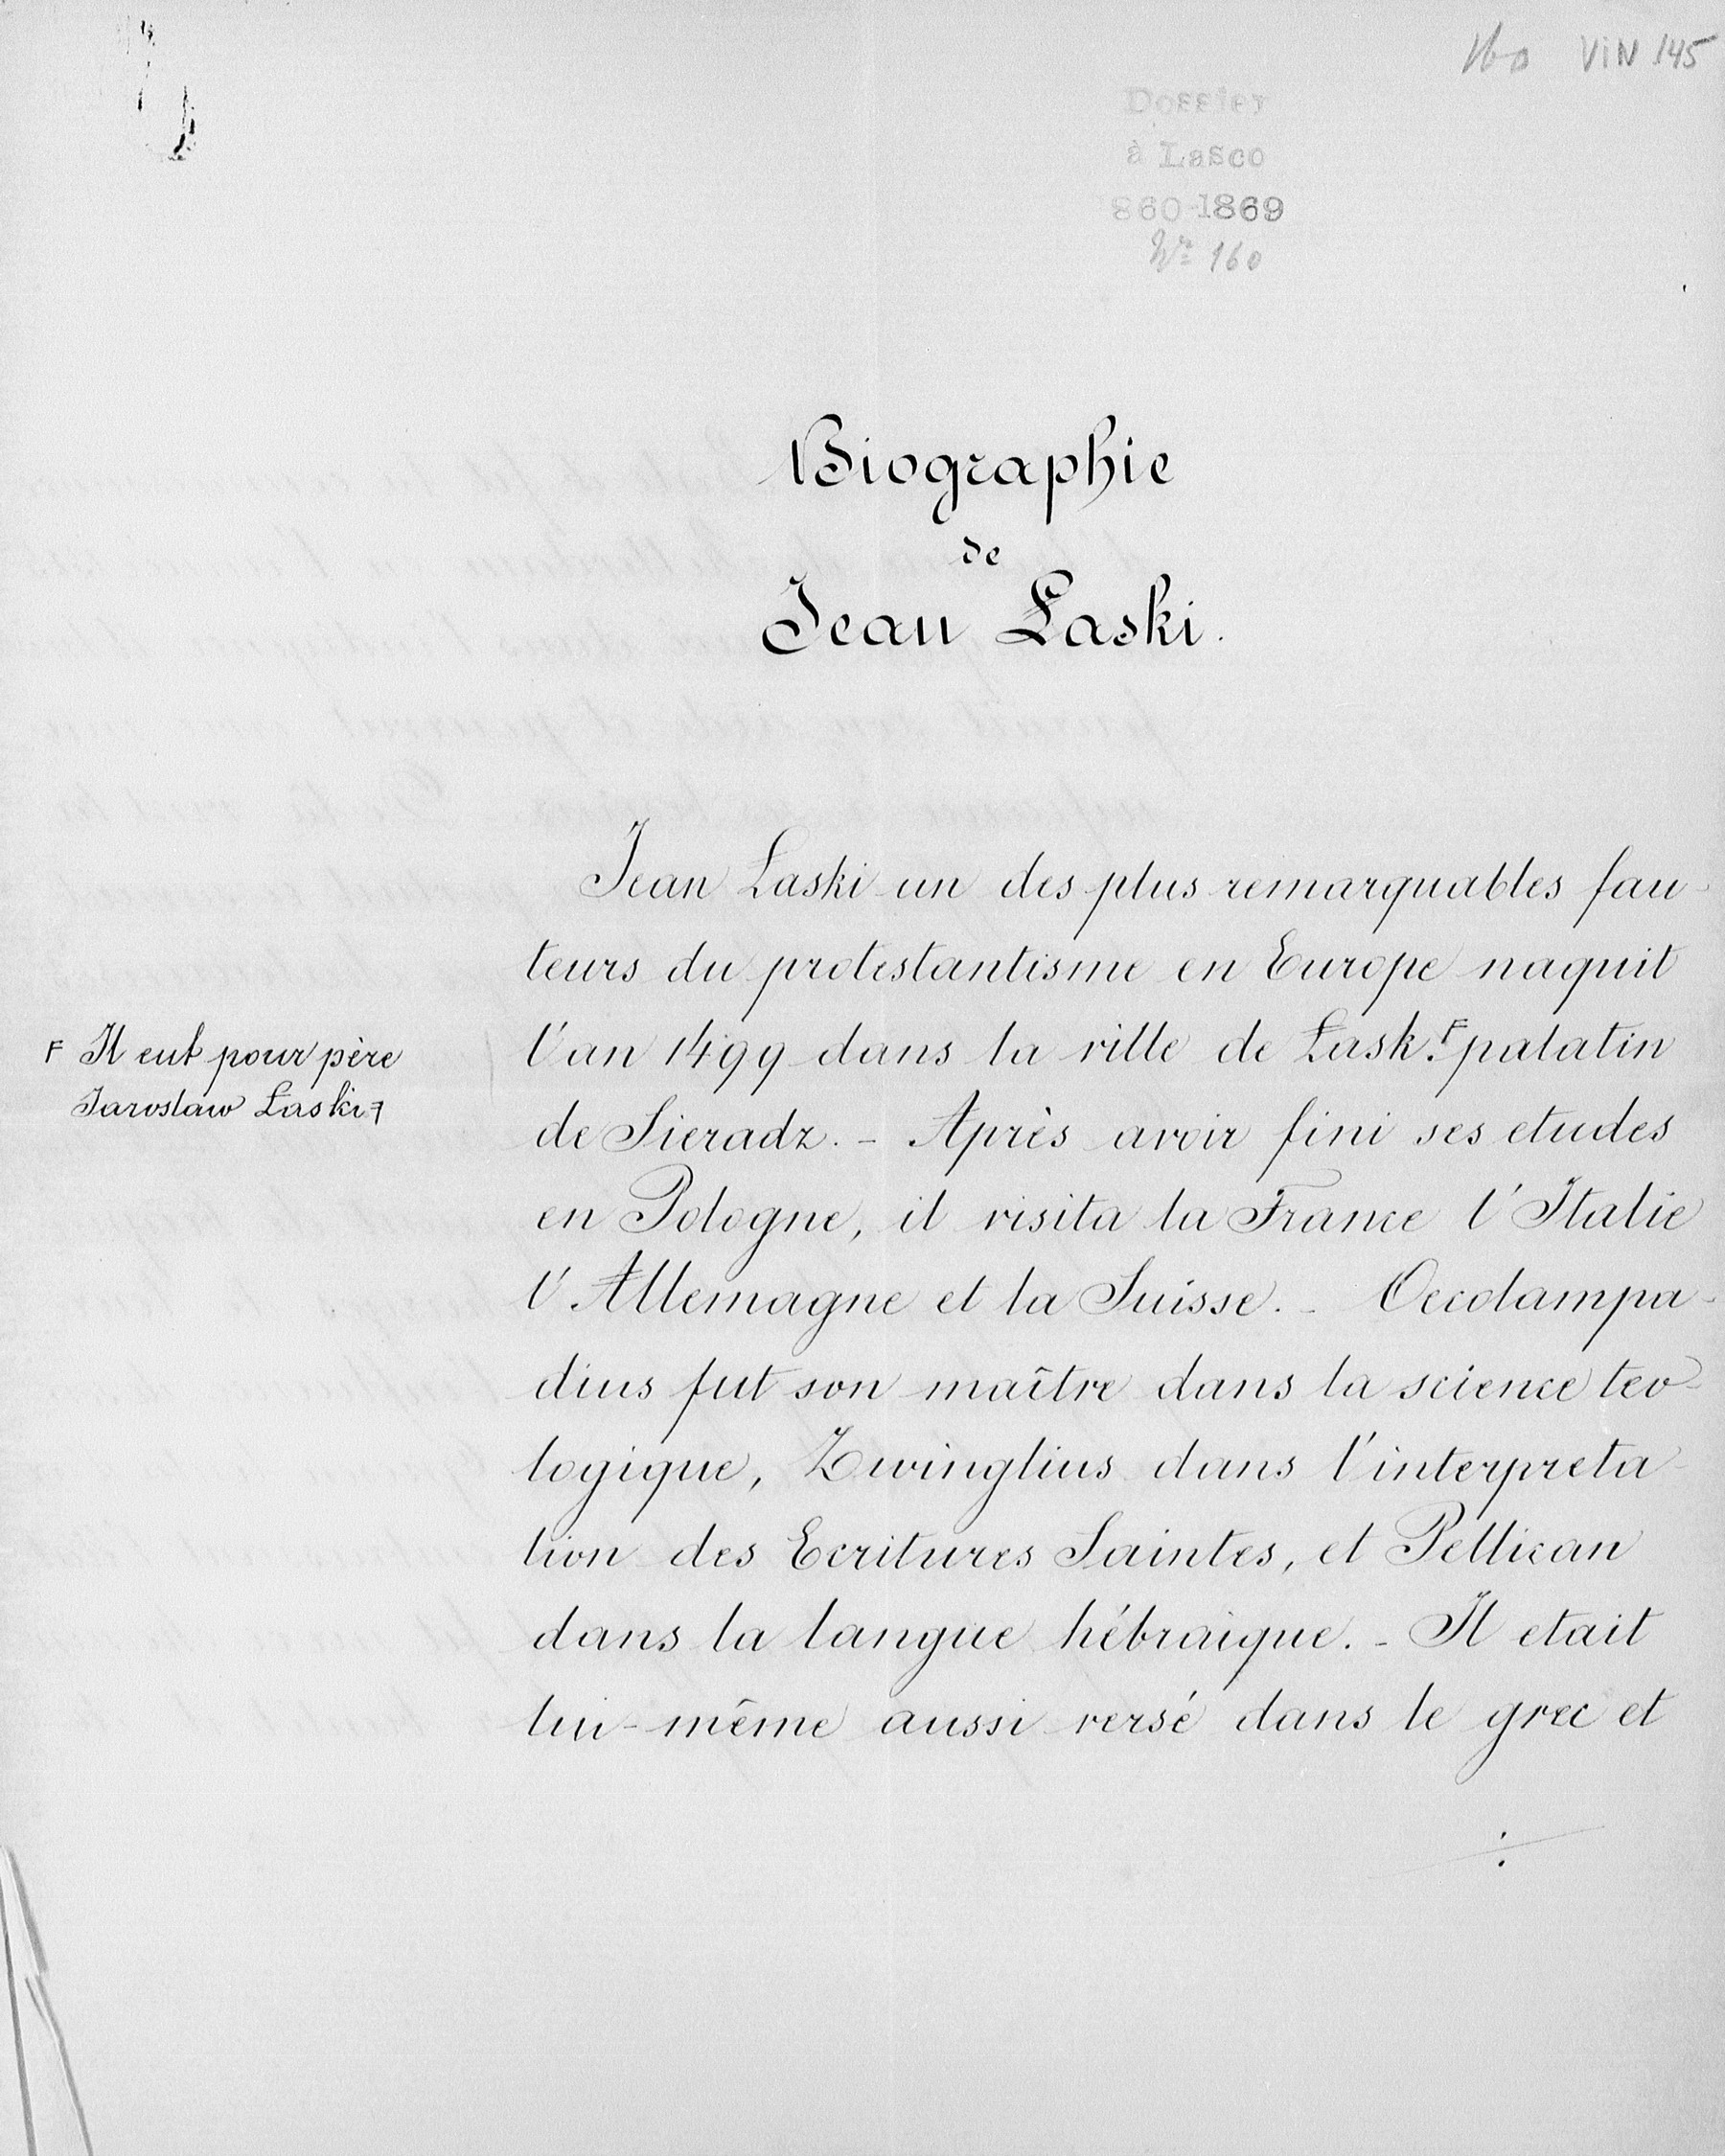 160 VIN 145
Dossier
à Lasco
860-1869
Nr 160
Biographie
de
Jean Łaski.
Jean Łaski un des plus remarquables fau-
teurs du protestantisme en Europe naquit
l'an 1499 dans la ville de Łask.F palatin
F Il eut pour père
Jaroslaw Łaski
de Sieradz. - Après avoir fini ses etudes
en Pologne, il visita la France l'Italie
l'Allemagne et la Suisse. - Oecolampa-
dius fut son maître dans la science teo-
logique, Zwinglius dans l'interpreta-
tion des Ecritures Saintes, et Pellican
dans la langue hébraique. - Il etait
lui-même aussi versé dans le grec et